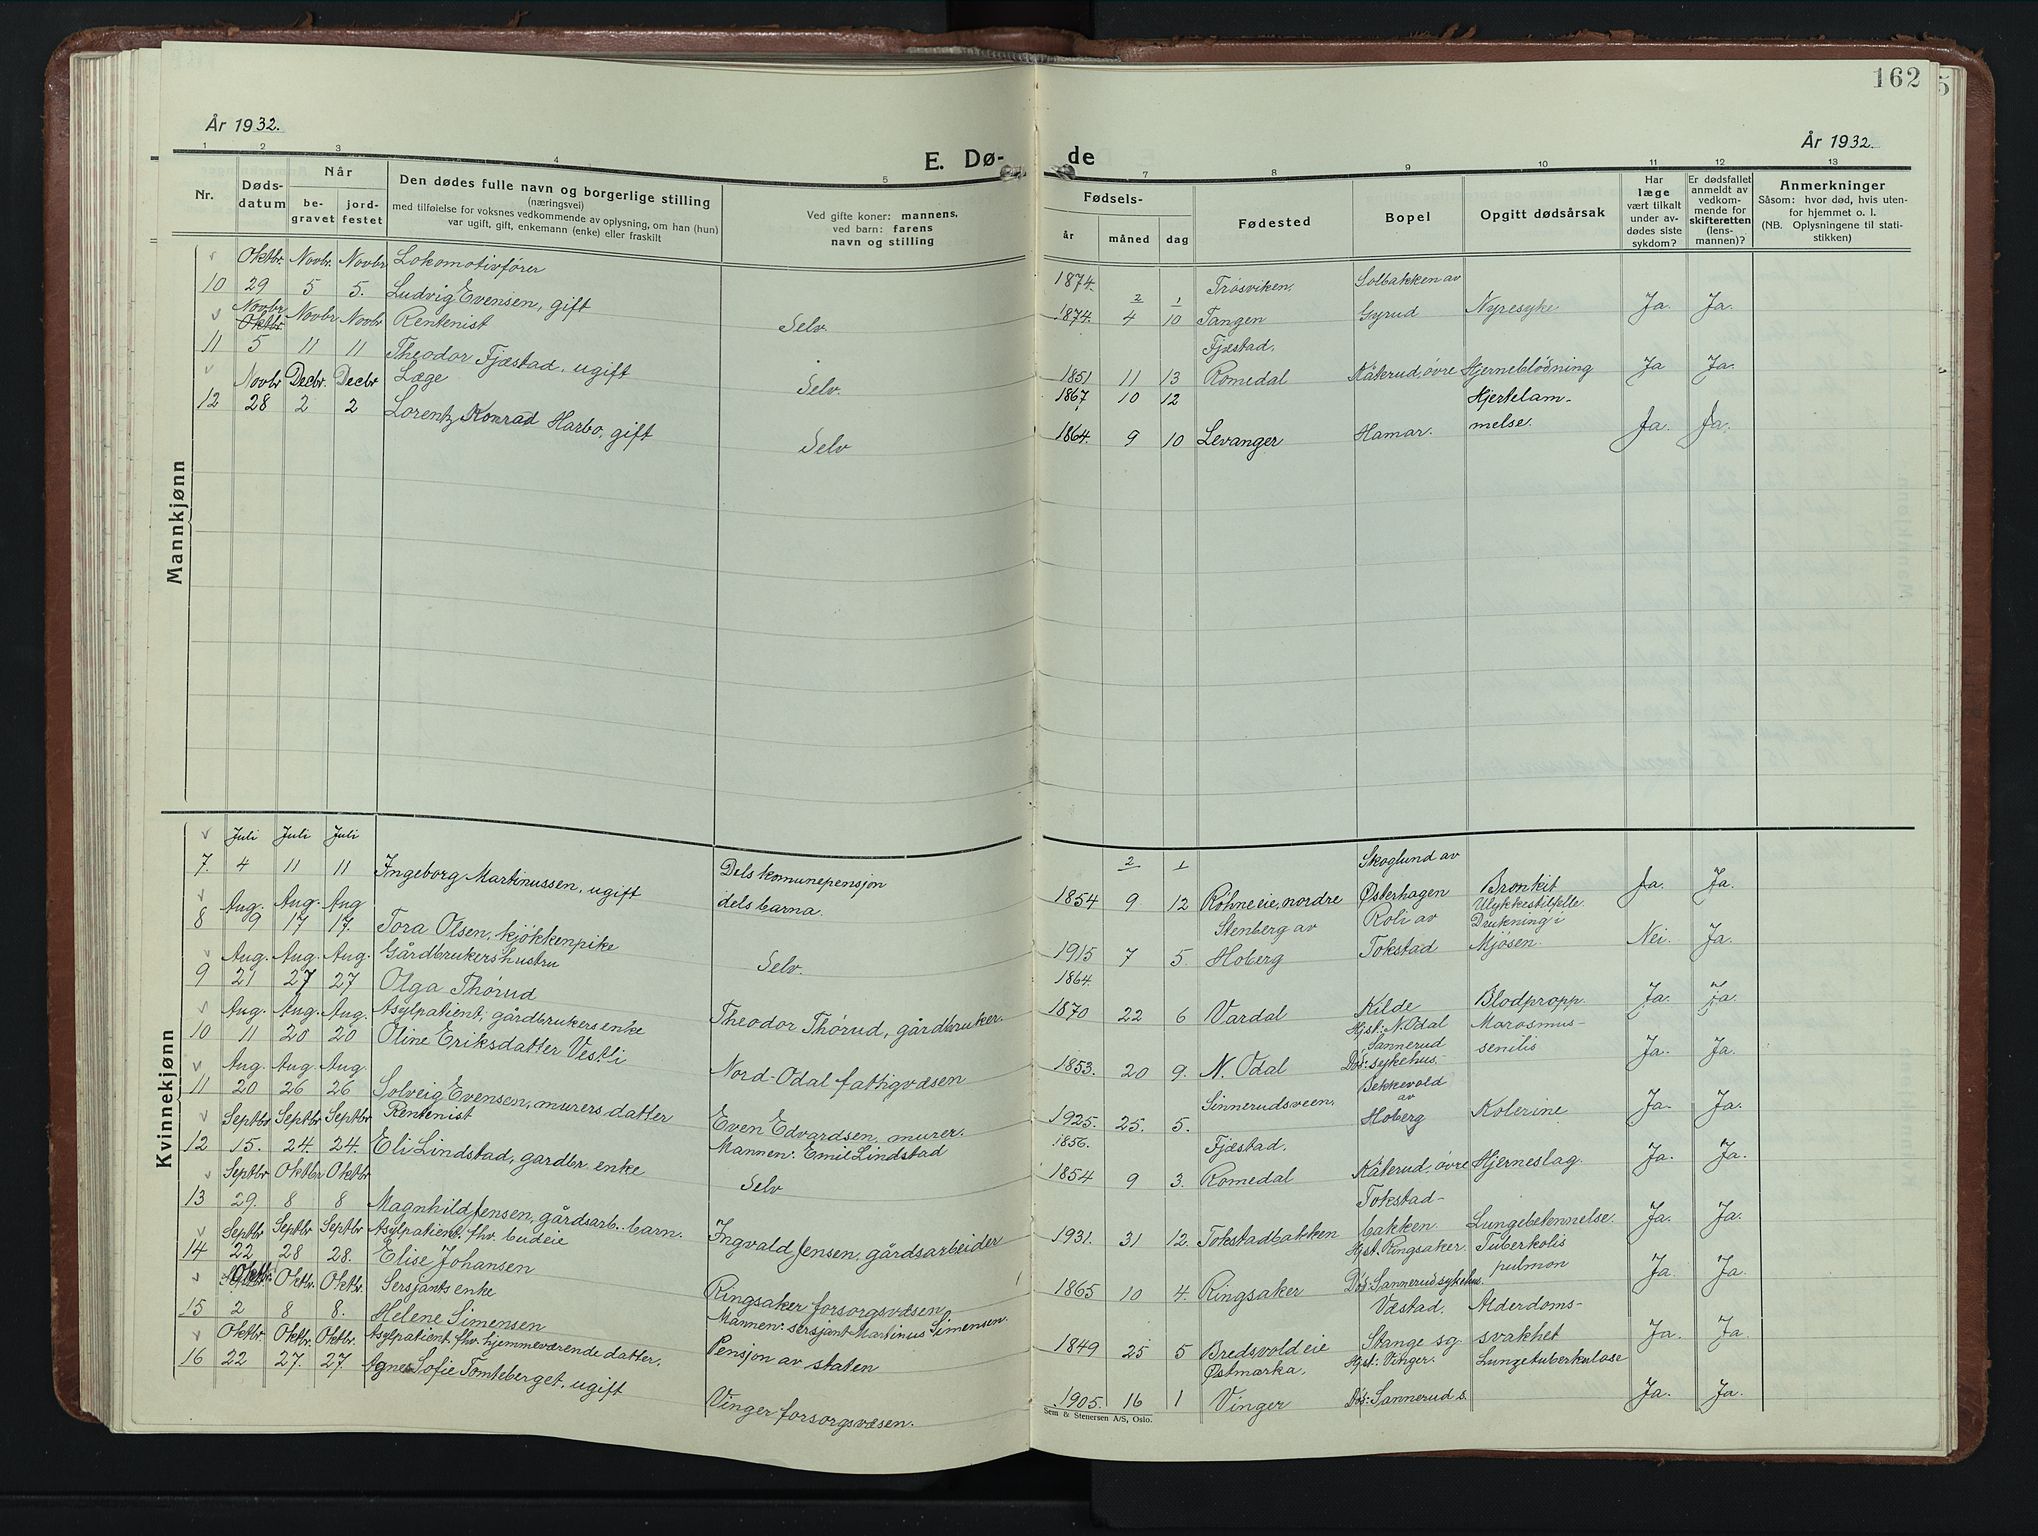 162
År 1932.
År 1932.
E. Dø-
de
1 2 3 4 5 7 8 9 10 11 12 13
Nr.
Døds-
datum
Når
be-
gravet
jord-
festet
Den dødes fulle navn og borgerlige stilling
(næringsvei)
med tilføielse for voksnes vedkommende av oplysning, om han (hun)
var ugift, gift, enkemann (enke) eller fraskilt
Ved gifte koner: mannens,
ved barn: farens
navn og stilling
Fødsels-
år måned dag
Fødested
Bopel
Opgitt dødsårsak
Har
læge
vært tilkalt
under av-
dødes siste
sykdom?
Er dødsfallet
anmeldt av
vedkom-
mende for
skifteretten
(lens-
mannen)?
Anmerkninger
Såsom: hvor død, hvis uten-
for hjemmet o. l.
(NB. Oplysningene til stati-
stikken)
Mannkjønn
Oktbr. Novbr. Novbr Lokomotivfører
10 29 5 5. Ludvig Evensen, gift Selv.
1874. Trøsviken, Solbakken av
2 1
1874. 4 10 Tangen Gyrud Nyresyke Ja. Ja.
Novbr
Oktbr. Novbr Novbr Rentenist
11 5 11 11 Theodor Fjæstad, ugift Selv.
Fjæstad,
1851 11 13 Romedal Kåterud, øvre Hjerneblödning Ja Ja.
Novbr Decbr. Decbr Læge
12 28 2 2 Lorentz Konrad Harbo, gift Selv
1867 10 12 Hjertelam-
1864. 9 10 Levanger Hamar. melse. Ja. Ja.
Kvinnekjønn
Juli Juli Juli
7. 4 11 11 Ingeborg Martinussen, ugift Dels komunepensjon
dels barna.
2 1 Skoglund av
1854 9 12 Rohneeie, nordre Østerhagen Bronkit Ja. Ja.
Aug. Aug. Aug
8 9 17 17. Tora Olsen, kjökkenpike Selv.
Stenberg av Roli av Ulykkestilfelle.
Drukning i
1915 7 5. Hoberg Tokstad Mjösen. Nei. Ja.
Aug. Aug. Aug. Gårdbrukershustru
9 21 27 27 Olga Thorud Theodor Thørud, gårdbruker.
1864.
1870 22 6 Vardal Kilde Blodpropp. Ja. Ja.
Aug. Aug. Aug. Asylpatient, gårdbrukersenke
10 11 20 20 Oline Eriksdatter Vestli Nord-Odal fattigvæsen
Hjst: N. Odal Marasmus-
Sannerud senilis
1853. 20 9. N. Odal Dös: sykehus. Ja. Ja.
Aug. Aug. Aug.
11 20 26 26 Solveig Evensen, murers datter Even Edvardsen, murer.
Bekkevold
Sinnerudsveen, av
1925. 25. 5. Hoberg Kolerine Ja. Ja.
Septbr Septbr Septbr Rentenist
12 15. 24. 24. Eli Lindstad, gardbr. enke Mannen: Emil Lindstad
Selv
1856. Fjæstad,
1854 9 3. Romedal Kåterud, øvre Hjerneslag. Ja. Ja.
Septbr Oktbr Oktbr
13 29. 8 8 Magnhild Jensen, gårdsarb. barn. Ingvald Jensen, gårdsarbeider
Tokstad-
1931. 31 12. Tokstadbakken bakken. Lungebetennelse. Ja. Ja.
Septbr Septbr Septbr Asylpatient, fhv. budeie
14 22 28 28. Elise Johansen Ringsaker forsorgsvæsen
Hjst. Ringsaker. Tuberkolis
pulmon
1865 10 4. Ringsaker Dös: Sannerud sykehus. Ja. Ja.
Oktbr. Oktbr. Oktbr. Sersjants enke
15 2 8 8. Helene Simensen Mannen: sersjant Martinus Simensen.
Pensjon av staten
Væstad, Alderdoms-
1849 25 5 Bredsvoldeie Stange sg svakhet Ja. Ja.
Oktbr. Oktbr. Oktbr. Asylpatient, fhv. hjemmeværende datter.
16 22 27. 27. Agnes Sofie Tomteberget, ugift Vinger forsorgsvæsen.
Østmarka, Hjst: Vinger. Lungetuberkulose
1905. 16 1 Vinger Dös: Sannerud s. Ja. Ja.
Sem & Stenersen A/S, Oslo.